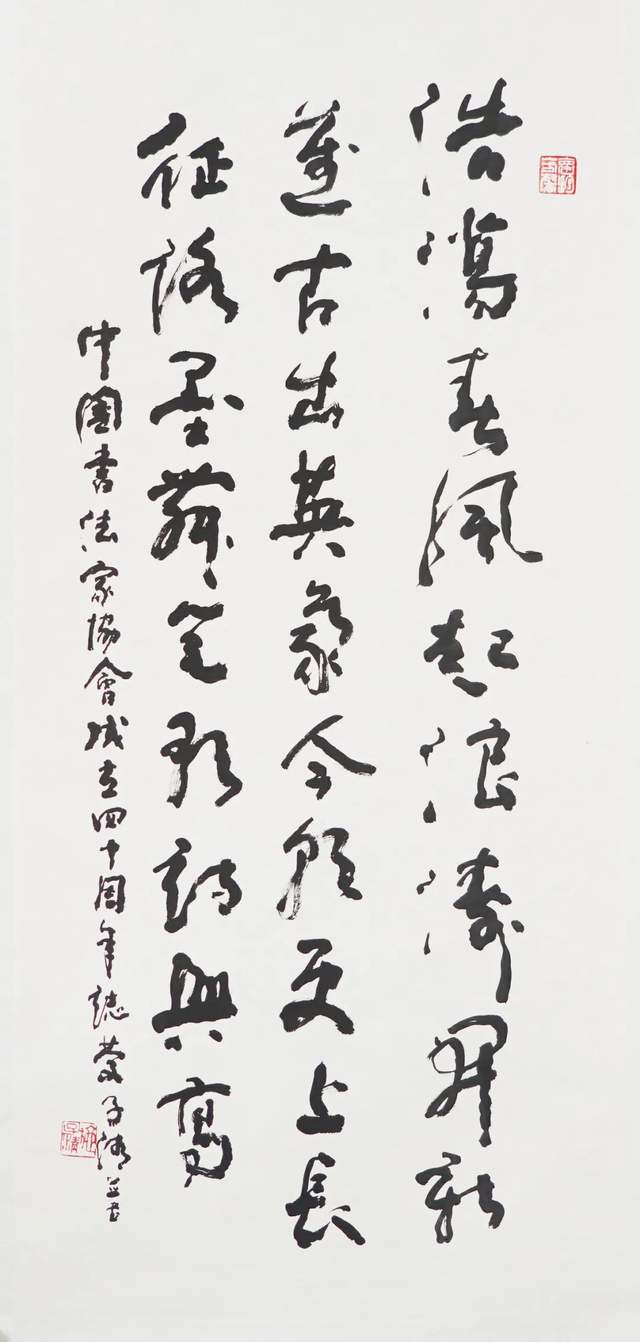 浩蕩春風起浪濤開新
邁古出英豪今朝更上長
征路墨舞笔歌詩興高
中國書法家協會成立四十周年誌慶子清並書